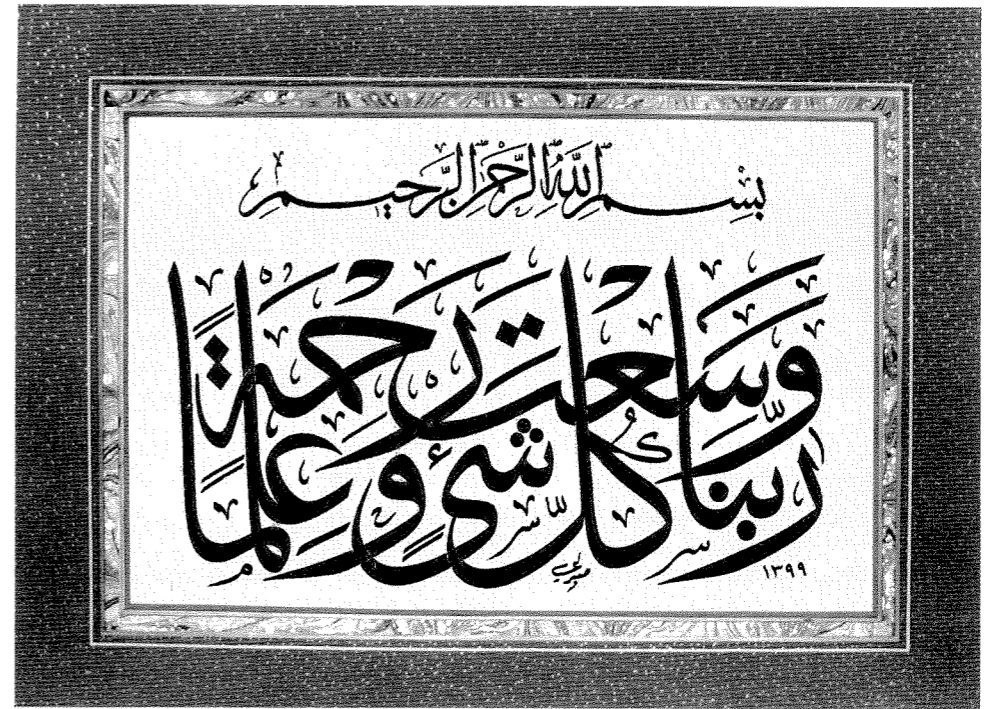 بِسْمِ اللَّهِ الرَّحْمَنِ الرَّحِيمِ
رَبَّنَا وَسِعْتَ كُلَّ شَيْءٍ رَحْمَةً وَعِلْمًا
١٣٩٩